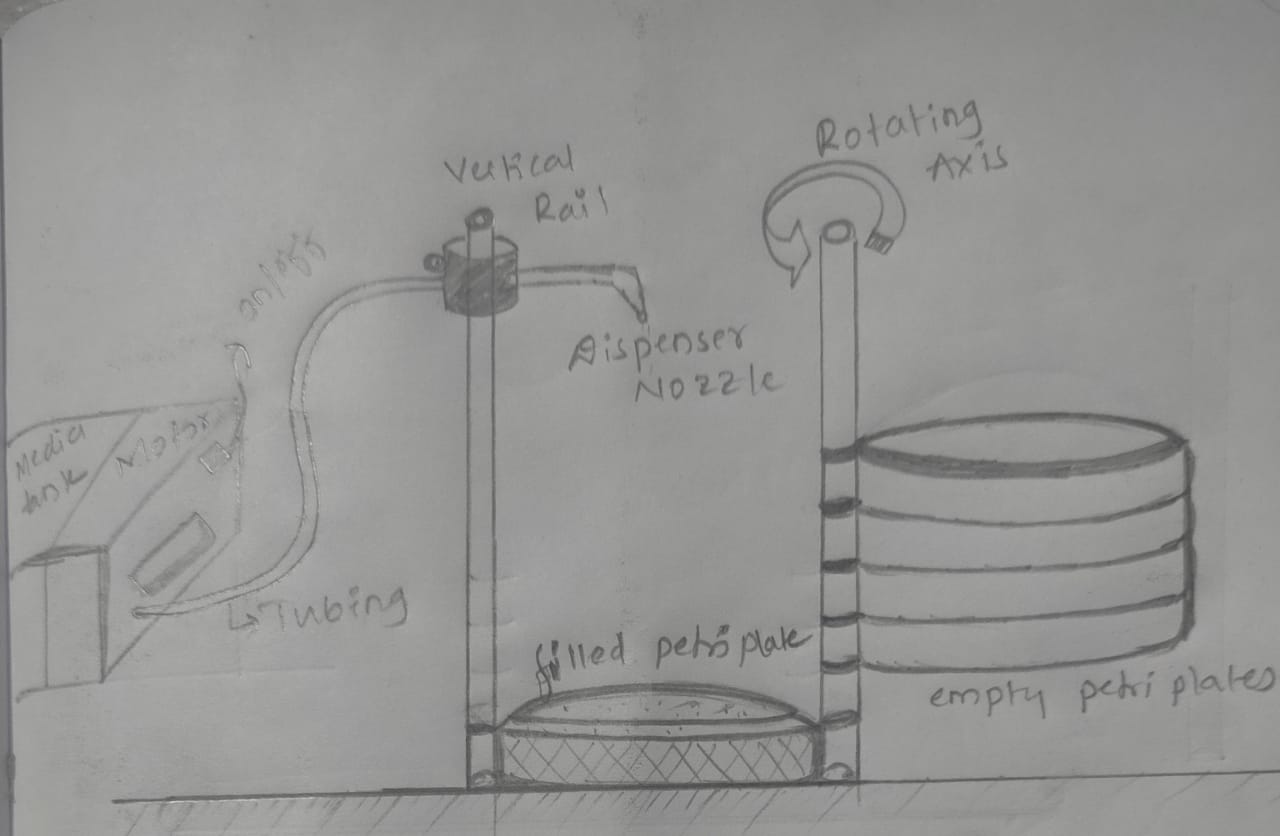 Rotating
Axis
Vertical
Rail
on/off
Dispenser
Nozzle
Media
tank
Motor
Tubing
filled petri plate
empty petri plates